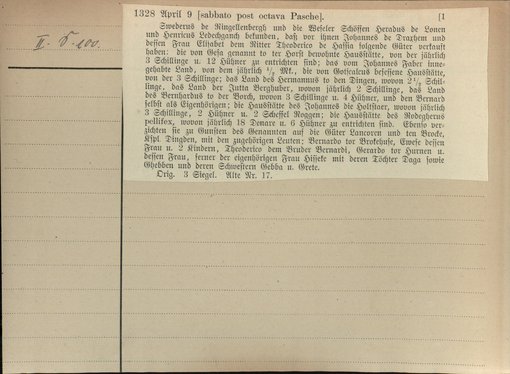 II. 5-100.
1328 April 9 [sabbato post octava Pasche]. [1
Swederus de Ringellenbergh und die Weseler Schöffen Heradus de Lonen
und Henricus Ledechganck bekunden, daß vor ihnen Johannes de Drazhem und
dessen Frau Elisabet dem Ritter Theoderico de Hassia folgende Güter verkauft
haben: die von Gesa genannt to ter Horst bewohnte Hausstätte, von der jährlich
3 Schillinge u. 12 Hühner zu entrichten sind; das vom Johannes Faber inne-
gehabte Land, von dem jährlich ½ Mk., die von Gotscalcus besessene Hausstätte,
von der 3 Schillinge; das Land des Hermannus to den Dingen, wovon 2½ Schil-
linge, das Land der Jutta Berghuber, wovon jährlich 2 Schillinge, das Land
des Bernhardus to der Borch, wovon 3 Schillinge u. 4 Hühner, und den Bernard
selbst als Eigenhörigen; die Hausstätte des Johannes die Holtstaer, wovon jährlich
3 Schillinge, 2 Hühner u. 2 Scheffel Roggen; die Hausstätte des Rodegherus
pellifex, wovon jährlich 18 Denare u. 6 Hühner zu entrichten sind. Ebenso ver-
zichten sie zu Gunsten des Genannten auf die Güter Lancoren und ten Brocke,
Kspl. Dingden, mit den zugehörigen Leuten; Bernardo tor Brokehuse, Ewese dessen
Frau u. 2 Kindern, Theoderico dem Bruder Bernardi, Gerardo tor Hurnen u.
dessen Frau, ferner der eigenhörigen Frau Hisseke mit deren Töchter Daga sowie
Ghebben und deren Schwestern Gebba u. Grete.
Orig. 3 Siegel. Alte Nr. 17.